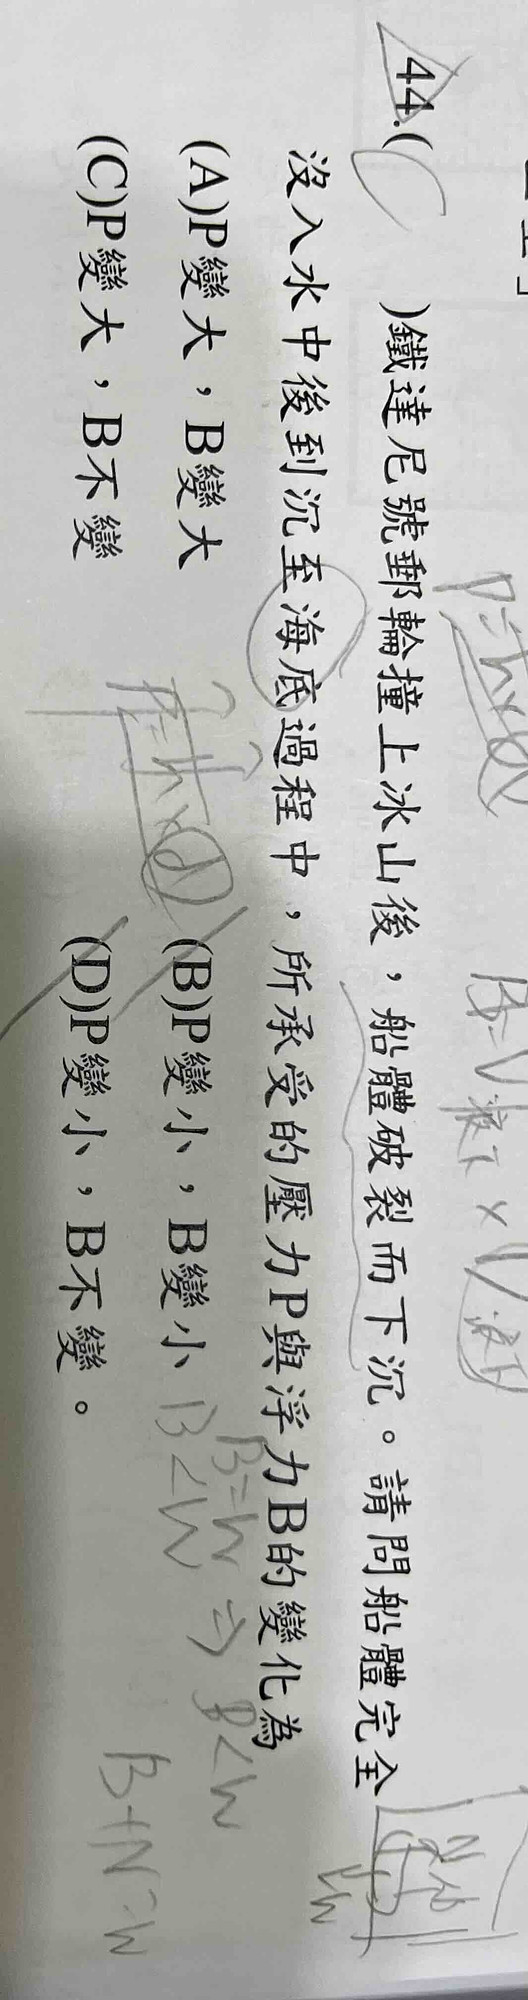 44.( C )鐵達尼號郵輪撞上冰山後，船體破裂而下沉。請問船體完全
沒入水中後到沉至海底過程中，所承受的壓力P與浮力B的變化為
(A)P變大，B變大 (B)P變小，B變小
(C)P變大，B不變 (D)P變小，B不變。
P=h×d
B=V液下×D液
P=h×d
B=W⇒B<W
B<W
B+N=W